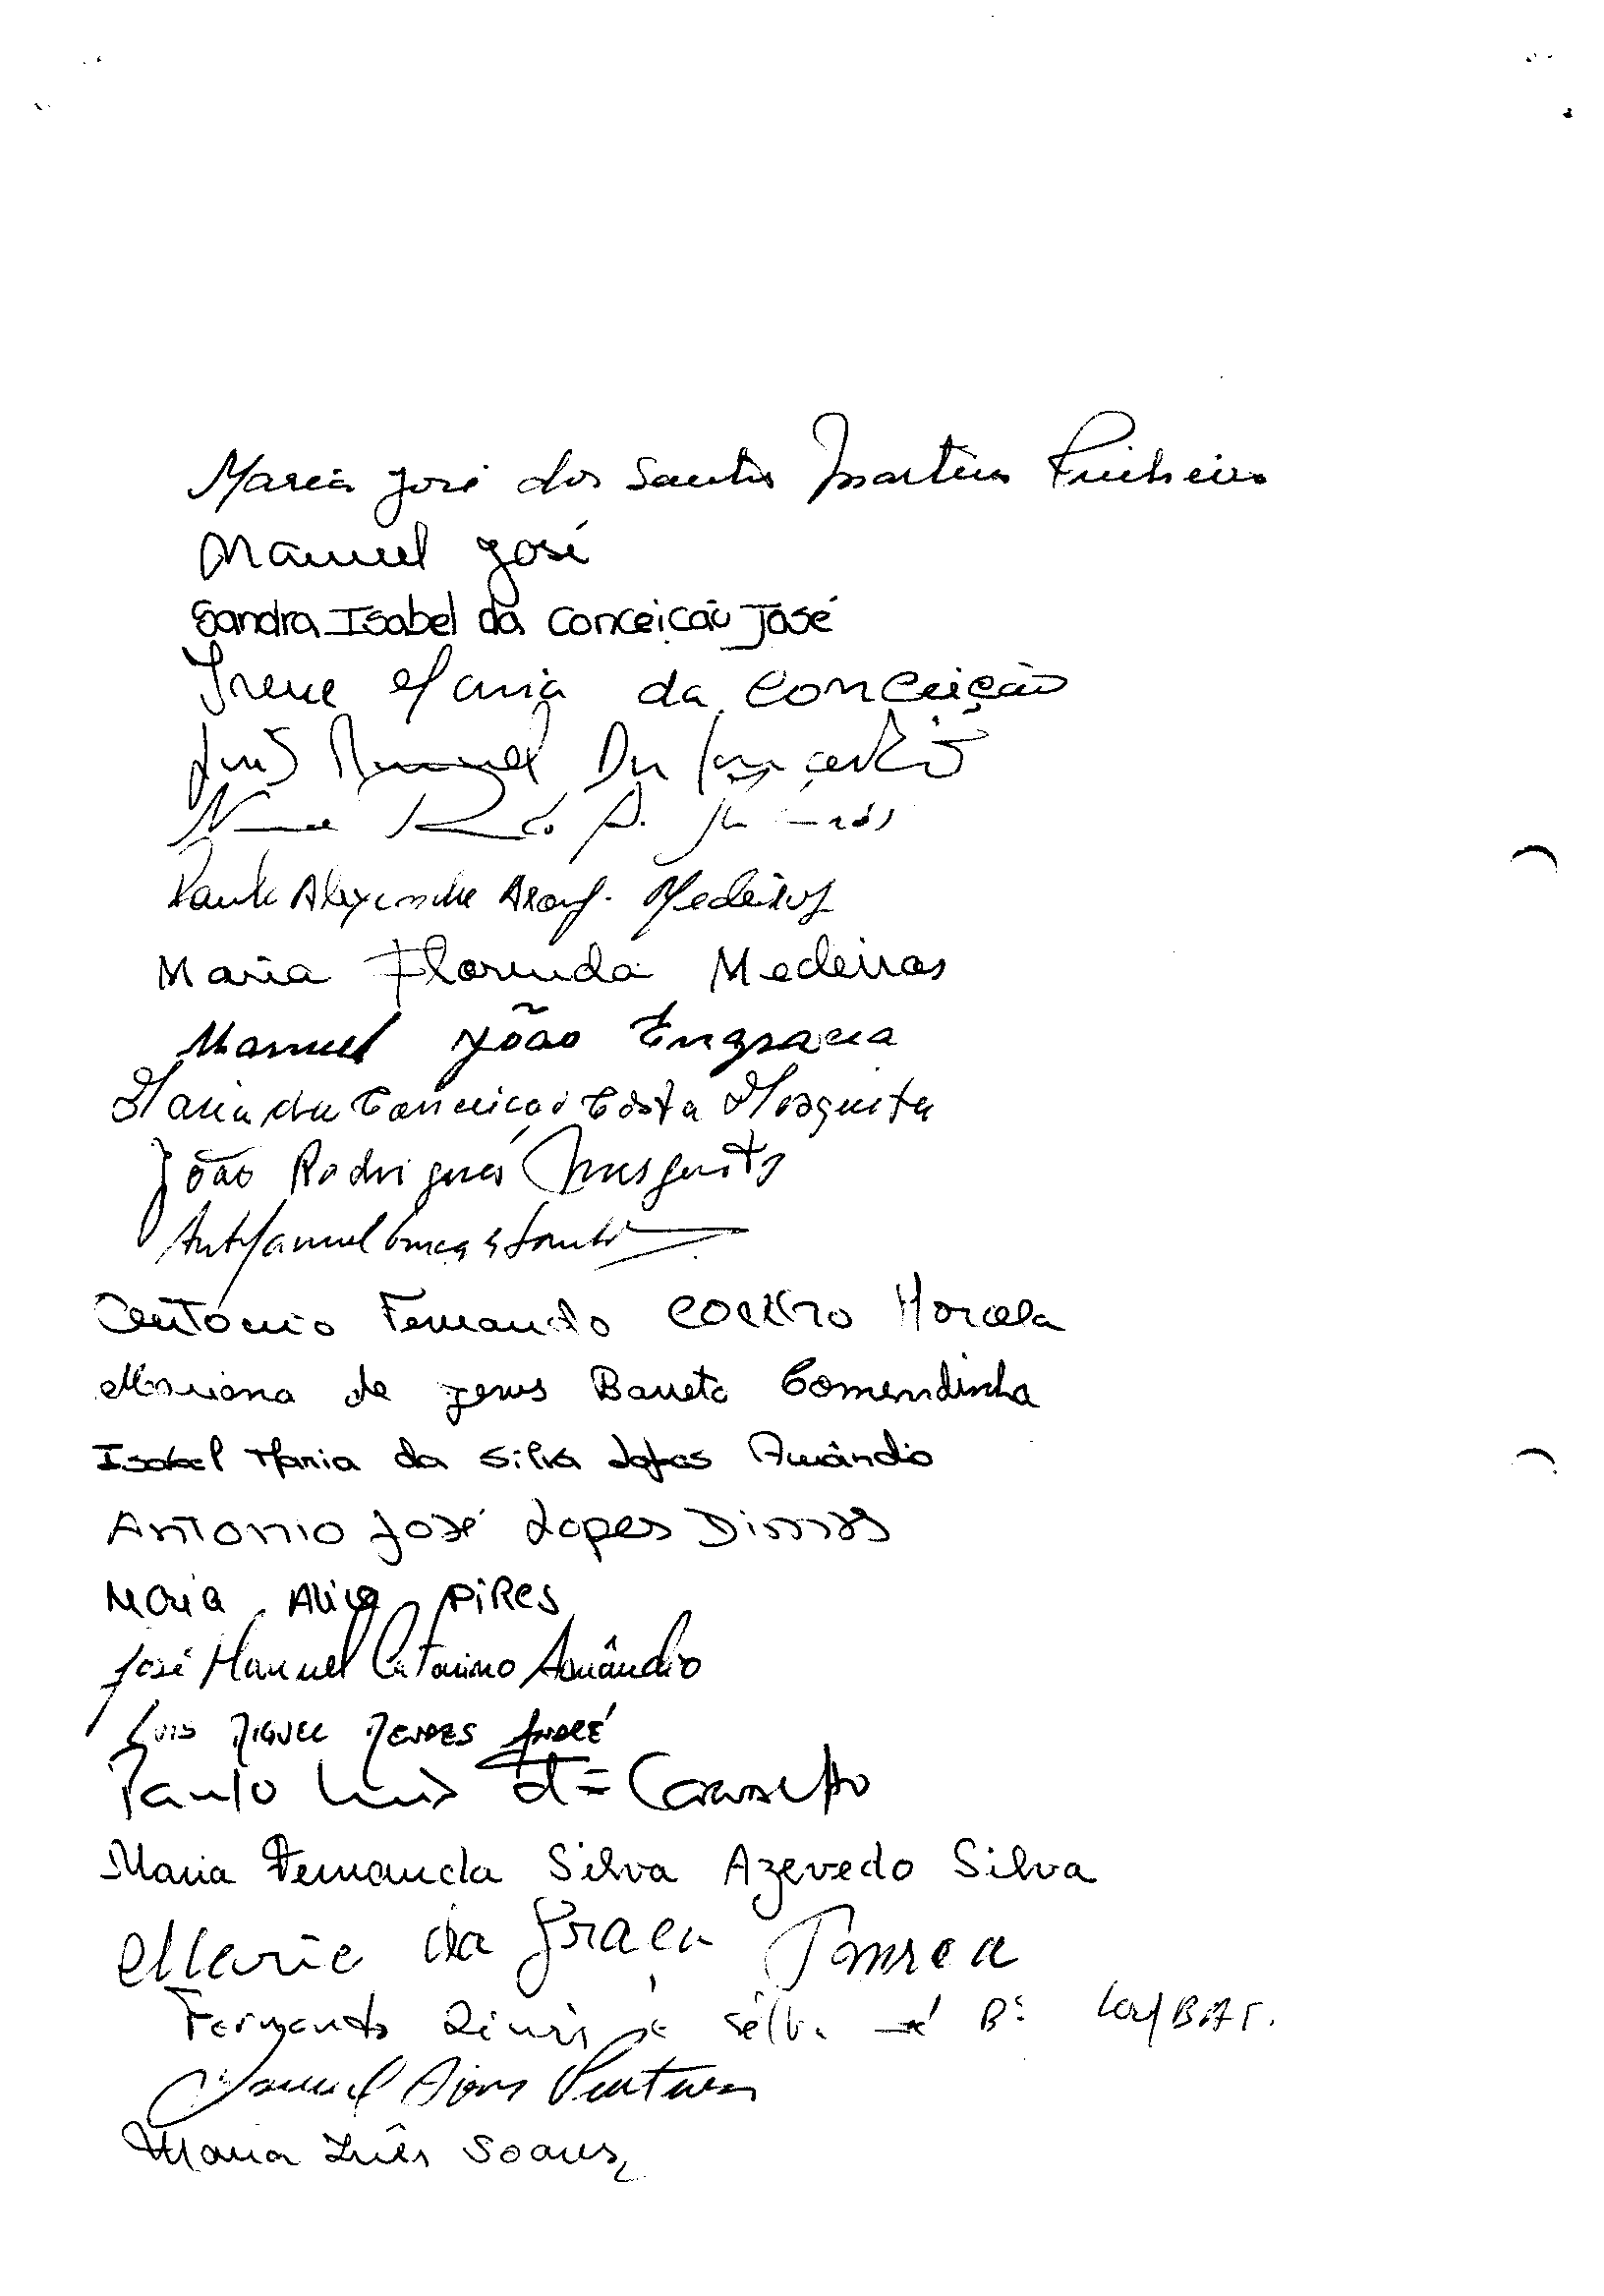 Maria José dos Santos Martins Pinheiro
Manuel José
Sandra Isabel da Conceição José
Irene Maria da Conceição
Luís Manuel
Alexandre Medeiros
Maria Florinda Medeiros
Manuel João Engracia
Maria da Conceição Costa Mosquita
João Rodrigues Mosquito
António Fernando Coelho Horcela
Mariana de Jesus Barreto Comendinha
Isabel Maria da Silva Lopes Amândio
Antonio José Lopes Dimas
Maria Alice Pires
José Manuel Catarino Amândio
Luis Miguel Mendes André
Paulo Luis d= Carvalho
Maria Fernanda Silva Azevedo Silva
Maria da Graça Fonseca
Fernando Silva
Manuel Ventura
Maria Inês Soares